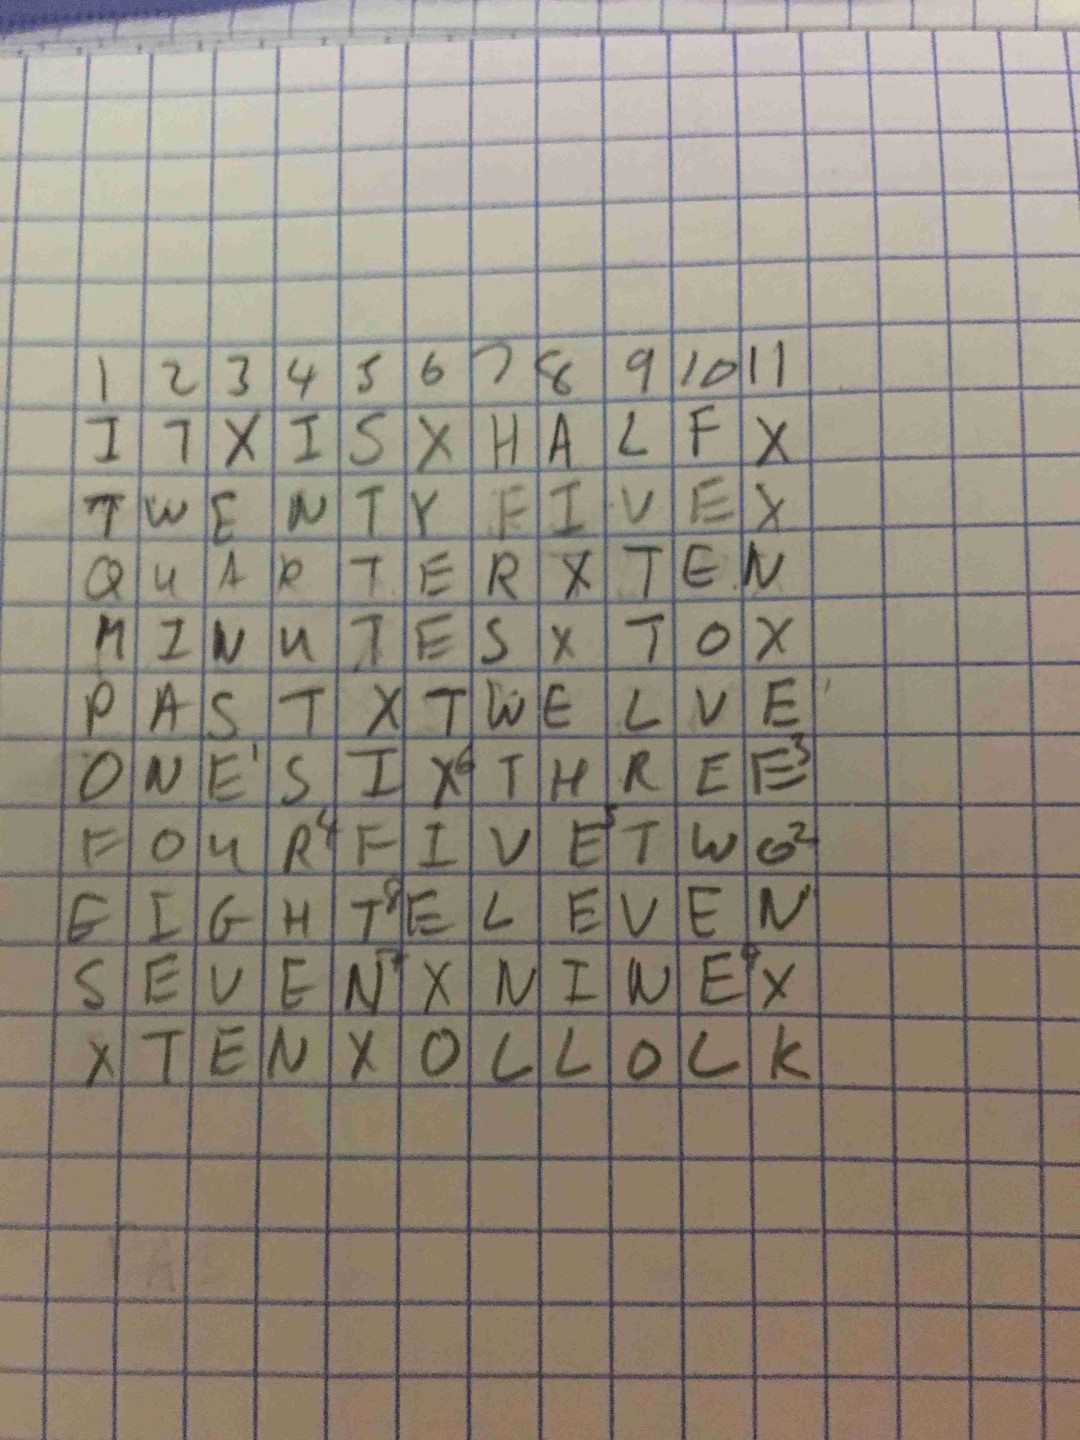 1 2 3 4 5 6 7 8 9 10 11
I T X I S X H A L F X
T W E N T Y F I V E X
Q U A R T E R X T E N
M I N U T E S X T O X
P A S T X T W E L V E
O N E 1 S I X 6 T H R E E 3
F O U R 4 F I V E 5 T W O 2
E I G H T 8 E L E V E N
S E V E N 7 X N I N E 9 X
X T E N X O L L O L K